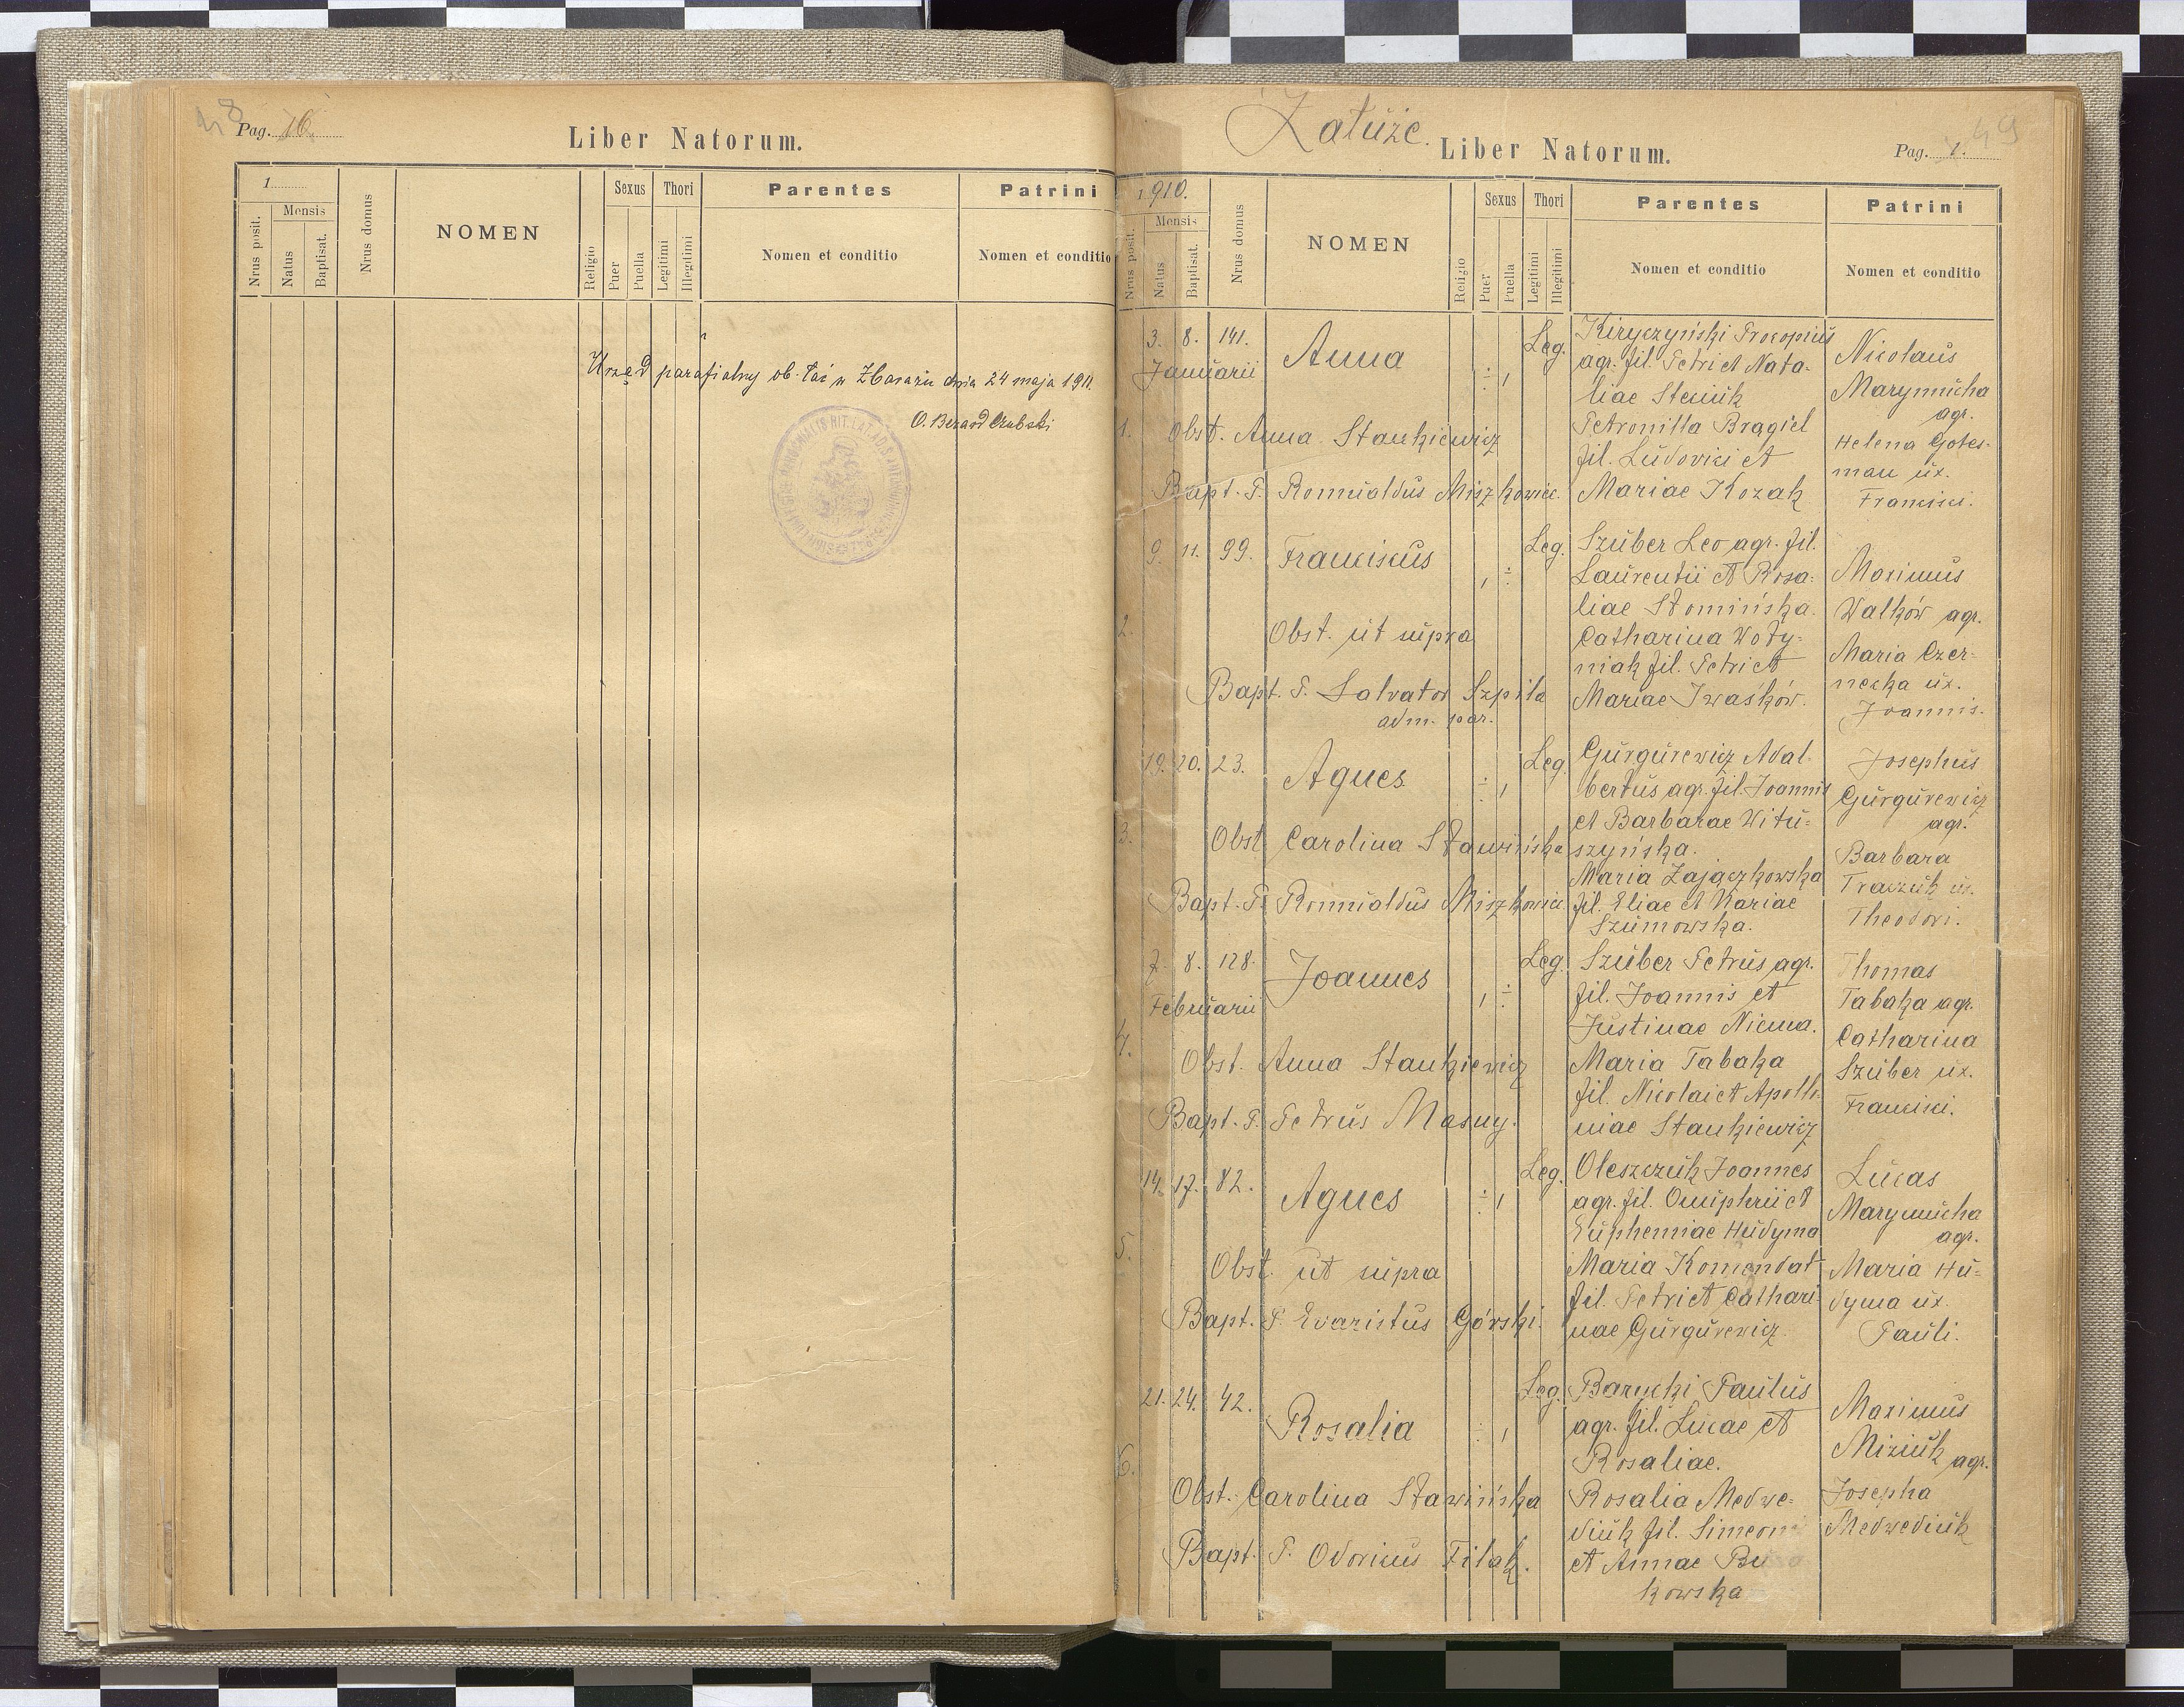 48
Pag. 16.
Liber Natorum.
1
Mensis
Nrus posit.
Natus
Baptisat.
Nrus domus
NOMEN
Religio
Sexus
Puer
Puella
Thori
Legitimi
Illegitimi
Parentes
Nomen et conditio
Patrini
Nomen et conditio
Urząd parafialny ob. łać w Zbarażu dnia 24 maja 1911.
49
Załuże.
Liber Natorum.
Pag. 1.
1910.
Mensis
Nrus posit.
Natus
Baptisat.
Nrus domus
NOMEN
Religio
Sexus
Puer
Puella
Thori
Legitimi
Illegitimi
Parentes
Nomen et conditio
Patrini
Nomen et conditio
1.
3. 8. 141.
Januarii
Anna
Leg.
Obst. Anna Stankiewicz
Bapt. P. Romualdus Miszkowicz.
Kiryczyński Procopius
agr. fil. Petri et Nata-
liae Steciuk
Petronilla Brągiel
fil. Ludovici et
Mariae Kozak
Nicolaus
Marynnicha
agr.
Helena Gotes-
man ux.
Francisci.
2.
9. 11. 99.
Franciscus
Leg.
Obst. ut supra
Bapt. P. Salvator Szpila
adm. par.
Szuber Leo agr. fil.
Laurentii et Rosa-
liae Słomińska.
Catharina Woły-
niak fil. Petri et
Mariae Iwaśków.
Maximus
Walków agr.
Maria Czer-
necka ux.
Joannis.
3.
19. 20. 23.
Agnes
Leg.
Obst. Carolina Sławińska
Bapt. P. Romualdus Miszkowicz
Gurgurewicz Adal-
bertus agr. fil. Joannis
et Barbarae Witu-
szyńska.
Maria Zajączkowska
fil. Eliae et Mariae
Szumowska.
Josephus
Gurgurewicz
agr.
Barbara
Traczuk ux.
Theodori.
4.
7. 8. 128.
Februarii
Joannes
Leg.
Obst. Anna Stankiewicz
Bapt. P. Petrus Masny.
Szuber Petrus agr.
fil. Joannis et
Justinae Niema.
Maria Tabaka
fil. Nicolai et Apollo-
niae Stankiewicz
Thomas
Tabaka agr.
Catharina
Szuber ux.
Francisci.
5.
14. 17. 82.
Agnes
Leg.
Obst. ut supra
Bapt. P. Evaristus Górski.
Oleszczuk Joannes
agr. fil. Onuphrii et
Euphemiae Hudyma
Maria Komendat
fil. Petri et Cathari-
nae Gurgurewicz.
Lucas
Marynnicha
agr.
Maria Hu-
dyma ux.
Pauli.
6.
21. 24. 42.
Rosalia
Leg.
Obst. Carolina Sławińska
Bapt. P. Odoricus Filak.
Barycki Paulus
agr. fil. Lucae et
Rosaliae.
Rosalia Medwe-
diuk fil. Simeoni
et Annae
kowska
Maximus
Miziuk agr.
Josepha
Medwediuk